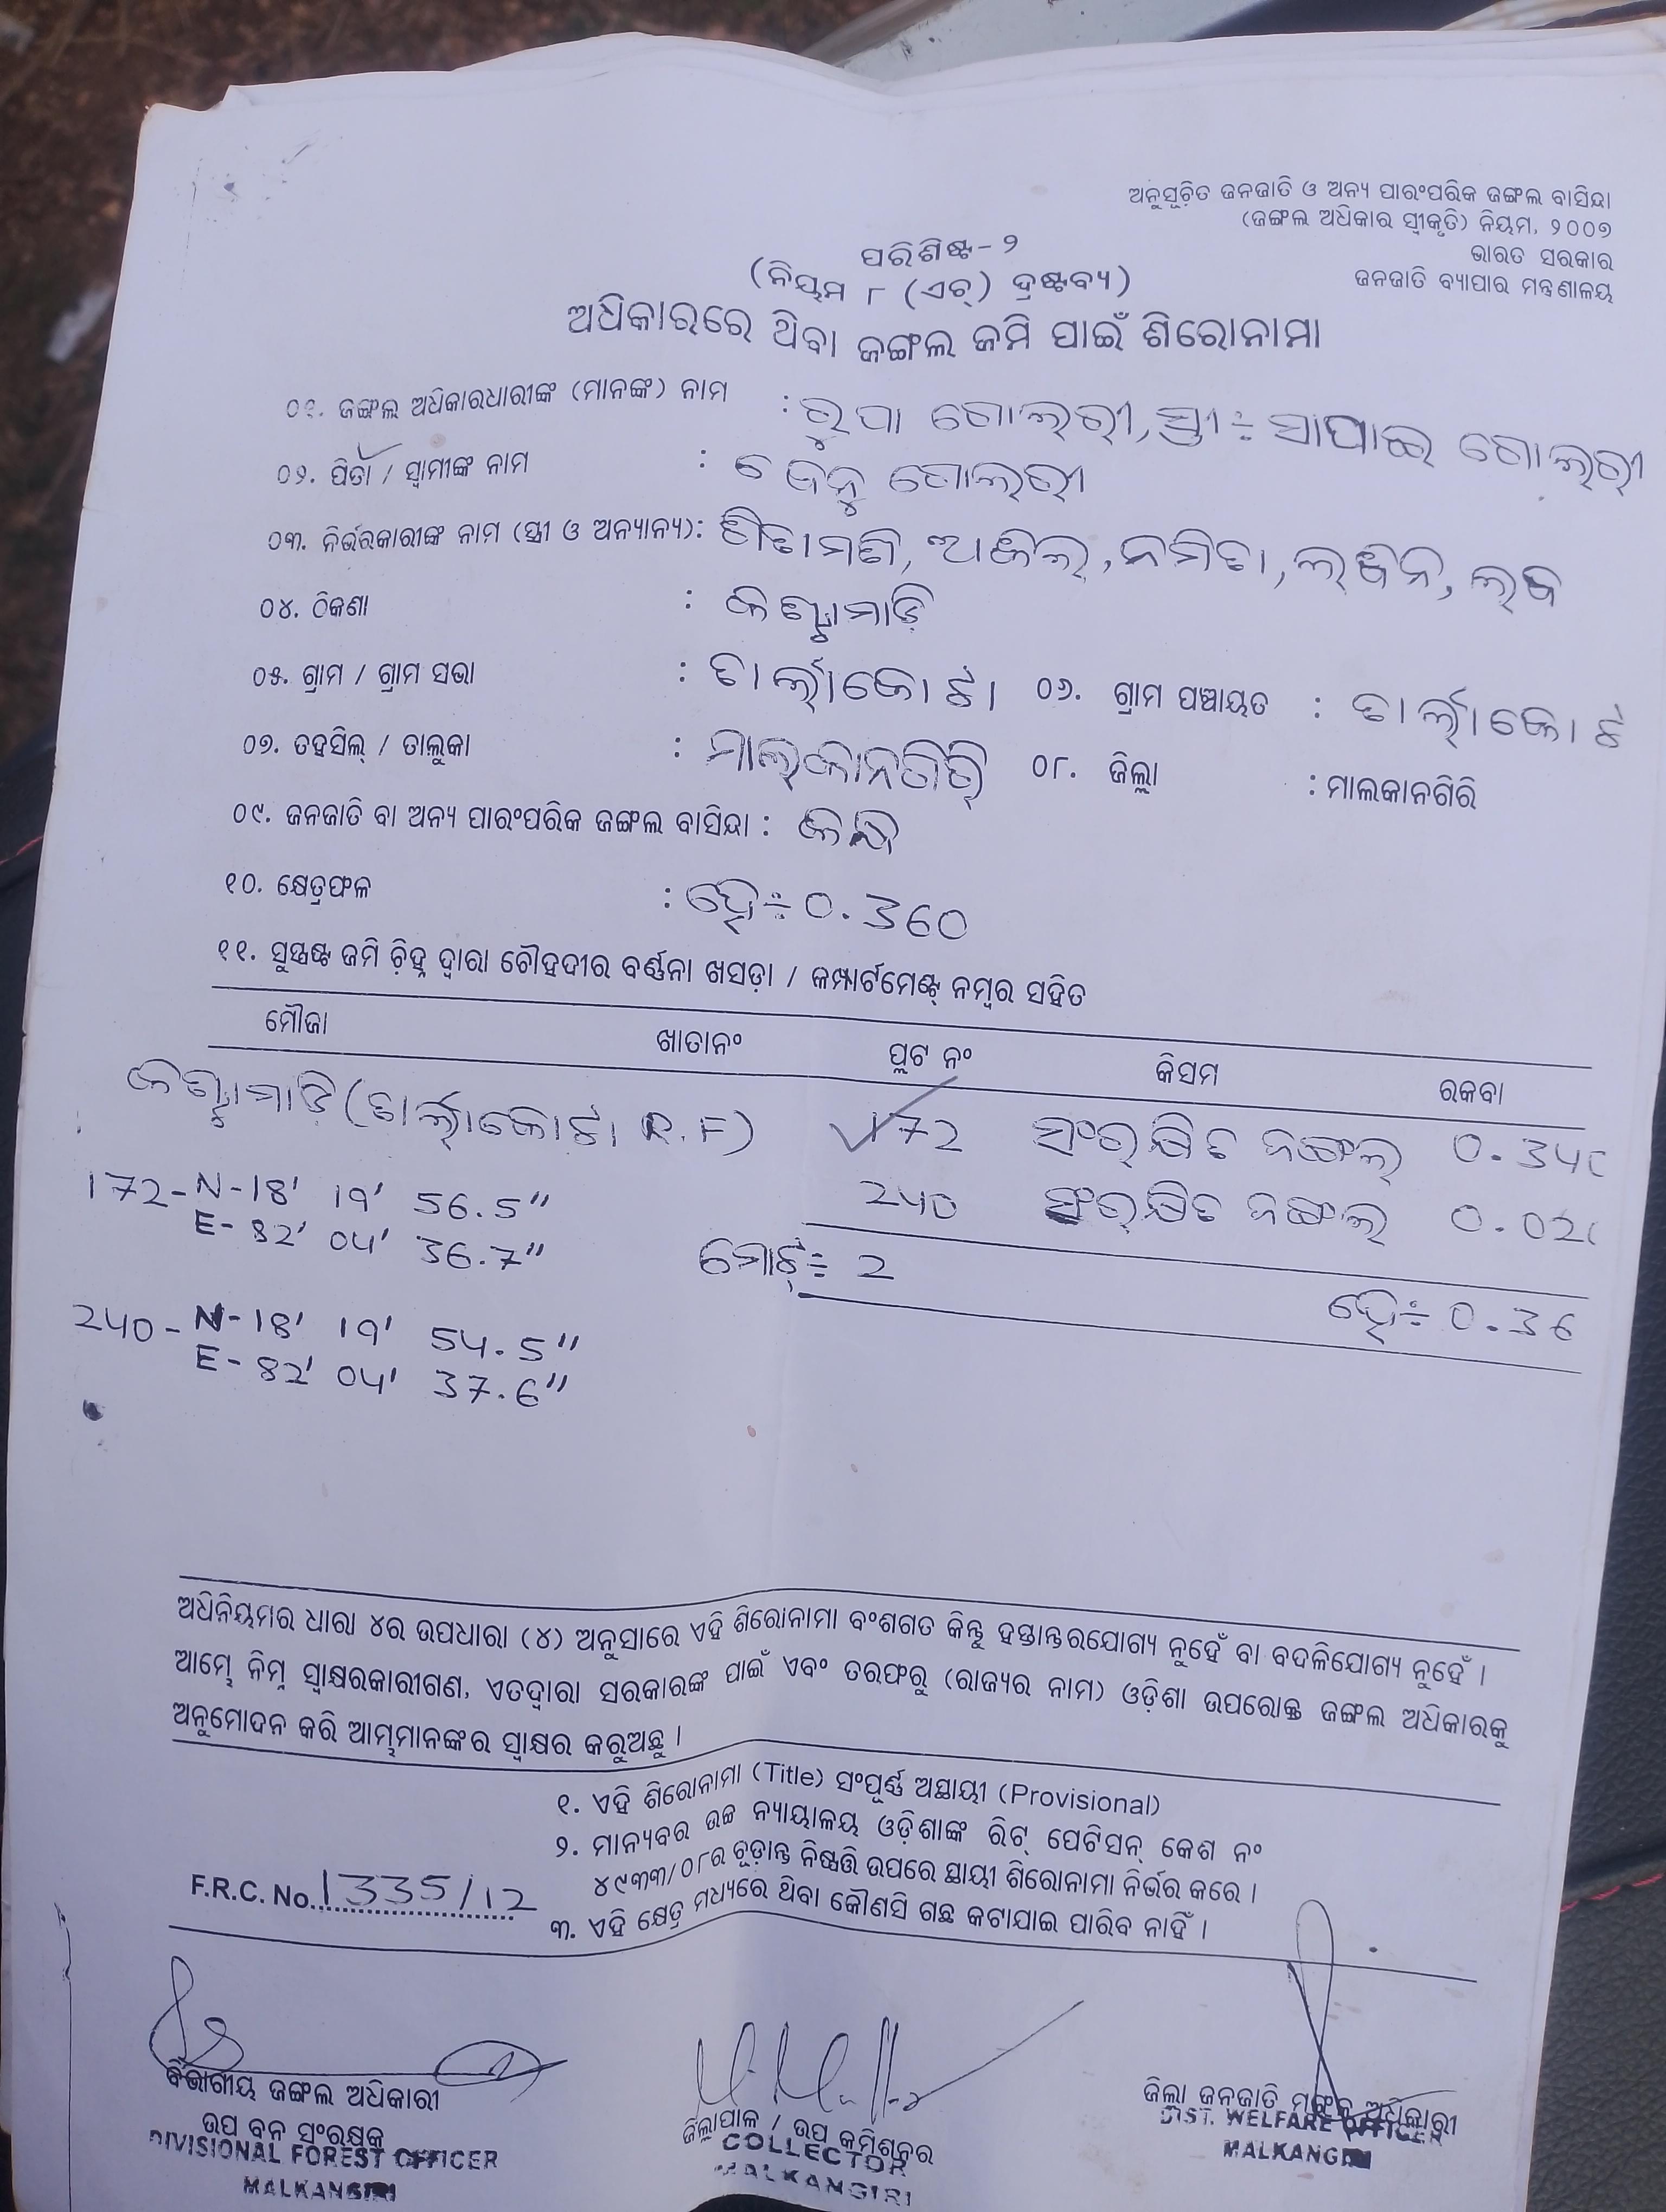 ଅନୁସୂଚିତ ଜନଜାତି ଓ ଅନ୍ୟ ପାରଂପରିକ ଜଙ୍ଗଲ ବାସିନ୍ଦା
(ଜଙ୍ଗଲ ଅଧିକାର ସ୍ୱୀକୃତି) ନିୟମ, ୨୦୦୭
ଭାରତ ସରକାର
ଜନଜାତି ବ୍ୟାପାର ମନ୍ତ୍ରଣାଳୟ
ପରିଶିଷ୍ଟ - ୨
(ନିୟମ ୮ (ଏଚ୍) ଦ୍ରଷ୍ଟବ୍ୟ)
ଅଧିକାରରେ ଥିବା ଜଙ୍ଗଲ ଜମି ପାଇଁ ଶିରୋନାମା
୦୧. ଜଙ୍ଗଲ ଅଧିକାରଧାରୀଙ୍କ (ମାନଙ୍କ) ନାମ : ରୁପା ଗୋଲରୀ, ସ୍ତ୍ରୀ ÷ ସାପାଇ ଗୋଲରୀ
୦୨. ପିତା / ସ୍ୱାମୀଙ୍କ ନାମ : ଗୋଲରୀ
୦୩. ନିର୍ଭରକାରୀଙ୍କ ନାମ (ସ୍ତ୍ରୀ ଓ ଅନ୍ୟାନ୍ୟ): ନମିତା,
୦୪. ଠିକଣା : କଣ୍ଟାମାଡ଼ି
୦୫. ଗ୍ରାମ / ଗ୍ରାମ ସଭା : ତାର୍ଲାକୋଟା ୦୬. ଗ୍ରାମ ପଞ୍ଚାୟତ : ତାର୍ଲାକୋଟା
୦୭. ତହସିଲ୍ / ତାଲୁକା : ମାଲ୍‌କାନଗିରି ୦୮. ଜିଲ୍ଲା : ମାଲକାନଗିରି
୦୯. ଜନଜାତି ବା ଅନ୍ୟ ପାରଂପରିକ ଜଙ୍ଗଲ ବାସିନ୍ଦା : କନ୍ଧ
୧୦. କ୍ଷେତ୍ରଫଳ : ହେ ÷ 0.360
୧୧. ସୁସ୍ପଷ୍ଟ ଜମି ଚିହ୍ନ ଦ୍ୱାରା ଚୌହଦୀର ବର୍ଣ୍ଣନା ଖସଡ଼ା / କମ୍ପାର୍ଟମେଣ୍ଟ୍ ନମ୍ବର ସହିତ
ମୌଜା ଖାତାନଂ ପ୍ଲଟ ନଂ କିସମ ରକବା
କଣ୍ଟାମାଡ଼ି (ତାର୍ଲାକୋଟା R.F) 172 ସଂରକ୍ଷିତ ଜଙ୍ଗଲ 0.340
172 - N - 18' 19' 56.5" 240 ସଂରକ୍ଷିତ ଜଙ୍ଗଲ 0.020
E - 82' 04' 36.7" ମୋଟ୍ ÷ 2 ହେ ÷ 0.36
240 - N - 18' 19' 54.5"
E - 82' 04' 37.6"
ଅଧିନିୟମର ଧାରା ୪ର ଉପଧାରା (୪) ଅନୁସାରେ ଏହି ଶିରୋନାମା ବଂଶଗତ କିନ୍ତୁ ହସ୍ତାନ୍ତରଯୋଗ୍ୟ ନୁହେଁ ବା ବଦଳିଯୋଗ୍ୟ ନୁହେଁ ।
ଆମ୍ଭେ ନିମ୍ନ ସ୍ୱାକ୍ଷରକାରୀଗଣ, ଏତଦ୍ୱାରା ସରକାରଙ୍କ ପାଇଁ ଏବଂ ତରଫରୁ (ରାଜ୍ୟର ନାମ) ଓଡ଼ିଶା ଉପରୋକ୍ତ ଜଙ୍ଗଲ ଅଧିକାରକୁ
ଅନୁମୋଦନ କରି ଆମ୍ଭମାନଙ୍କର ସ୍ୱାକ୍ଷର କରୁଅଛୁ ।
୧. ଏହି ଶିରୋନାମା (Title) ସଂପୂର୍ଣ୍ଣ ଅସ୍ଥାୟୀ (Provisional)
୨. ମାନ୍ୟବର ଉଚ୍ଚ ନ୍ୟାୟାଳୟ ଓଡ଼ିଶାଙ୍କ ରିଟ୍ ପେଟିସନ୍ କେଶ ନଂ
୪୯୩୩/୦୮ର ଚୂଡ଼ାନ୍ତ ନିଷ୍ପତ୍ତି ଉପରେ ସ୍ଥାୟୀ ଶିରୋନାମା ନିର୍ଭର କରେ ।
F.R.C. No. 1335/12
୩. ଏହି କ୍ଷେତ୍ର ମଧ୍ୟରେ ଥିବା କୌଣସି ଗଛ କଟାଯାଇ ପାରିବ ନାହିଁ ।
ବିଭାଗୀୟ ଜଙ୍ଗଲ ଅଧିକାରୀ
ଉପ ବନ ସଂରକ୍ଷକ
DIVISIONAL FOREST OFFICER
MALKANGIRI
ଜିଲ୍ଲାପାଳ / ଉପ କମିଶନର
COLLECTOR
MALKANGIRI
ଜିଲ୍ଲା ଜନଜାତି ମଙ୍ଗଳ ଅଧିକାରୀ
DIST. WELFARE OFFICER
MALKANGIRI